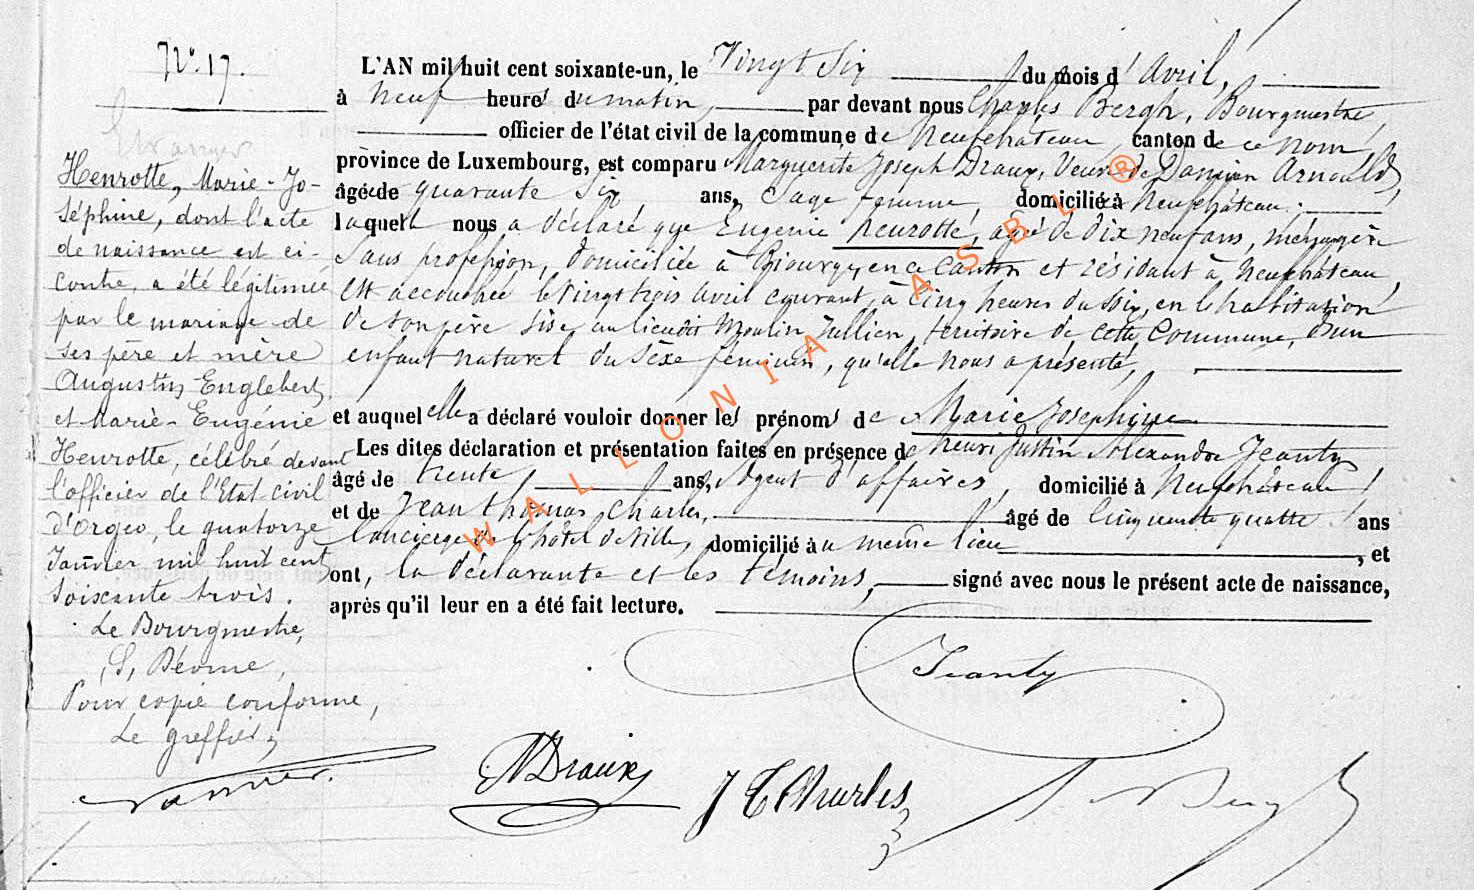 N° 17.
Etranger
Henrotte, Marie-Jo-
séphine, dont l'acte
de naissance est ci-
contre, a été légitimée
par le mariage de
ses père et mère
Augustin Englebert
et Marie-Eugénie
Henrotte, célébré devant
l'officier de l'Etat civil
d'Orgeo, le quatorze
Janvier mil huit cent
soixante trois.
Le Bourgmestre,
(S) Déome,
Pour copie conforme,
Le greffier,
L'AN mil huit cent soixante-un, le Vingt Six du mois d'Avril,
à neuf heures du matin, par devant nous Charles Bergh, Bourgmestre,
officier de l'état civil de la commune de Neufchâteau, canton de ce nom,
province de Luxembourg, est comparu Marguerite Joseph Draux, Veuve de Damien Arnould,
âgée de quarante six ans, Sage femme, domiciliée à Neufchâteau;
laquelle nous a déclaré que Eugénie henrotte, agée de dix neuf ans, ménagère
sans profession, domiciliée à Biourge, en ce Canton et résidant à Neufchâteau,
est accouchée le vingt trois avril courant, à cinq heures du soir, en l'habitation
de son père sise au lieudit Moulin Jullien, territoire de cette Commune, d'un
enfant naturel du sèxe féminin, qu'elle nous a présenté,
et auquel elle a déclaré vouloir donner les prénoms de Marie Josephine
Les dites déclaration et présentation faites en présence de henri Justin Alexandre Jeanty
âgé de trente ans, Agent d'affaires, domicilié à Neufchâteau
et de Jean thomas Charles, âgé de Cinquante quatre ans
Concierge de l'hôtel de Ville, domicilié au même lieu, et
ont, la déclarante et les témoins, signé avec nous le présent acte de naissance,
après qu'il leur en a été fait lecture.
Jeanty
M Draux
J T Charles
Bergh
WALLONIA ASBL ®